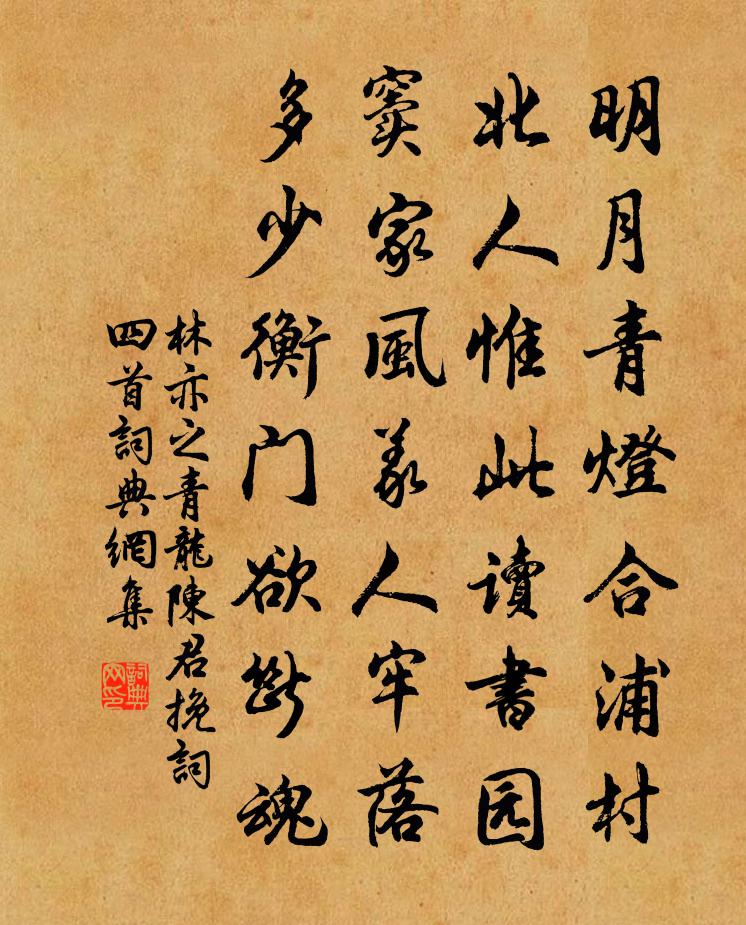 明月青燈合浦村
北人惟此讀書园
竇家風義人牢落
多少衡门欲斷魂
林亦之青龍陳君挽詞
四首詞典網集
詞典网印